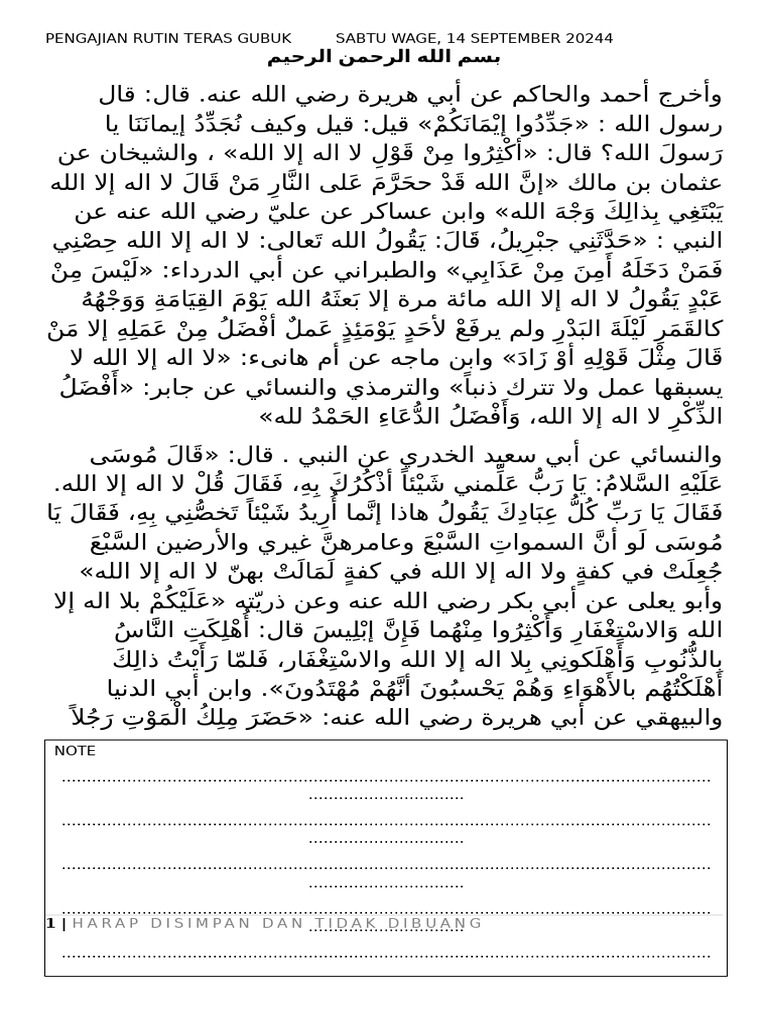 PENGAJIAN RUTIN TERAS GUBUK SABTU WAGE, 14 SEPTEMBER 20244
بسم الله الرحمن الرحيم
وأخرج أحمد والحاكم عن أبي هريرة رضي الله عنه. قال: قال
رسول الله : «جَدِّدُوا إيْمَانَكُمْ» قيل: قيل وكيف نُجَدِّدُ إيمانَنَا يا
رَسولَ الله؟ قال: «أكْثِرُوا مِنْ قَوْلِ لا اله إلا الله» ، والشيخان عن
عثمان بن مالك «إنَّ الله قَدْ ححَرَّمَ عَلى النَّارِ مَنْ قَالَ لا اله إلا الله
يَبْتَغِي بِذالِكَ وَجْهَ الله» وابن عساكر عن عليّ رضي الله عنه عن
النبي : «حَدَّثَنِي جبْرِيلُ، قَالَ: يَقُولُ الله تَعالى: لا اله إلا الله حِصْنِي
فَمَنْ دَخَلَهُ أَمِنَ مِنْ عَذَابِي» والطبراني عن أبي الدرداء: «لَيْسَ مِنْ
عَبْدٍ يَقُولُ لا اله إلا الله مائة مرة إلا بَعثَهُ الله يَوْمَ القِيَامَةِ وَوَجْهُهُ
كالقَمَرِ لَيْلَةَ البَدْرِ ولم يرفَعْ لأحَدٍ يَوْمَئِذٍ عَملٌ أفْضَلُ مِنْ عَمَلِهِ إلا مَنْ
قَالَ مِثْلَ قَوْلِهِ أوْ زَادَ» وابن ماجه عن أم هانىء: «لا اله إلا الله لا
يسبقها عمل ولا تترك ذنباً» والترمذي والنسائي عن جابر: «أَفْضَلُ
الذِّكْرِ لا اله إلا الله، وَأَفْضَلُ الدُّعَاءِ الحَمْدُ لله»
والنسائي عن أبي سعيد الخدري عن النبي . قال: «قَالَ مُوسَى
عَلَيْهِ السَّلامُ: يَا رَبُّ عَلِّمني شَيْئاً أذْكُرُكَ بِهِ، فَقَالَ قُلْ لا اله إلا الله.
فَقَالَ يَا رَبِّ كُلُّ عِبَادِكَ يَقُولُ هاذا إنَّما أُرِيدُ شَيْئاً تَخصُّنِي بِهِ، فَقَالَ يَا
مُوسَى لَو أنَّ السمواتِ السَّبْعَ وعامرهنَّ غيري والأرضين السَّبْعَ
جُعِلَتْ في كفةٍ ولا اله إلا الله في كفةٍ لَمَالَتْ بهنّ لا اله إلا الله»
وأبو يعلى عن أبي بكر رضي الله عنه وعن ذريّته «عَلَيْكُمْ بلا اله إلا
الله وَالاسْتِغْفَارِ وَأَكْثِرُوا مِنْهُما فَإِنَّ إبْلِيسَ قال: أُهْلِكَتِ النَّاسُ
بِالذُّنُوبِ وَأَهْلَكونِي بِلا اله إلا الله والاسْتِغْفَار، فَلمّا رَأَيْتُ ذالِكَ
أَهْلَكْتُهُم بالأَهْوَاءِ وَهُمْ يَحْسبُونَ أنَّهُمْ مُهْتَدُونَ». وابن أبي الدنيا
والبيهقي عن أبي هريرة رضي الله عنه: «حَضَرَ مِلِكُ الْمَوْتِ رَجُلاً
NOTE
1 | HARAP DISIMPAN DAN TIDAK DIBUANG